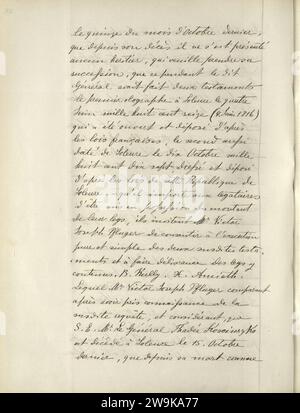 le quinze du mois d'Octobre dernier,
que depuis son décès, il ne s'est présenté
aucun héritier, qui veuille prendre sa
succession, que cependant le dit
Général avait fait deux testaments
le premier olographe à Soleure le quatre
Juin mille huit cent seize (4 Juin 1816)
qui a été ouvert et déposé d'après
les lois françaises, le second aussi
daté de Soleure, le dix Octobre mille
huit cent dix sept et déposé
d'après les lois de cette République de
Soleure
de leur legs, ils invitent Mr Victor
Joseph Pfluger de consentir à l'exécution
pure et simple des deux susdits testa-
ments et à faire délivrance des legs y
contenus. B. Kully. X. Amiet.
Lequel Mr Victor Joseph Pfluger comparant
après avoir pris connaissance de la
susdite requête, et considérant que
S. E. Mr le Général Thadé Kosciuszko
est décédé à Soleure le 15 Octobre
dernier, que depuis sa mort comme
alamy
Image ID: 2W9KA77
www.alamy.com